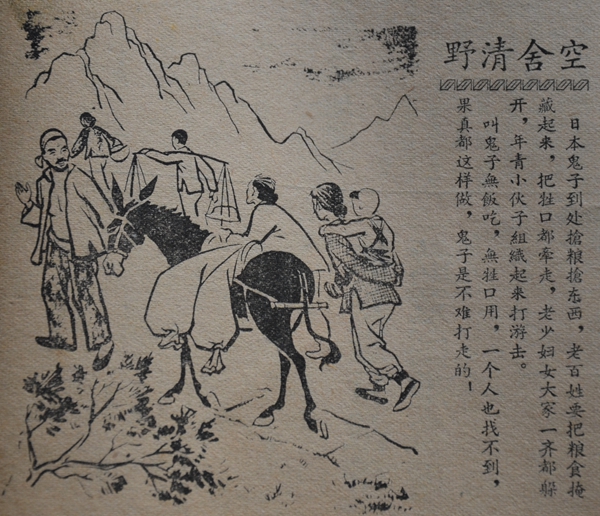 空舍清野
日本鬼子到处搶粮搶东西，老百姓要把粮食掩
藏起来，把牲口都牽走，老少妇女大家一齐都躲
开，年青小伙子組織起来打游击。
叫鬼子無飯吃，無牲口用，一个人也找不到，
果真都这样做，鬼子是不难打走的！